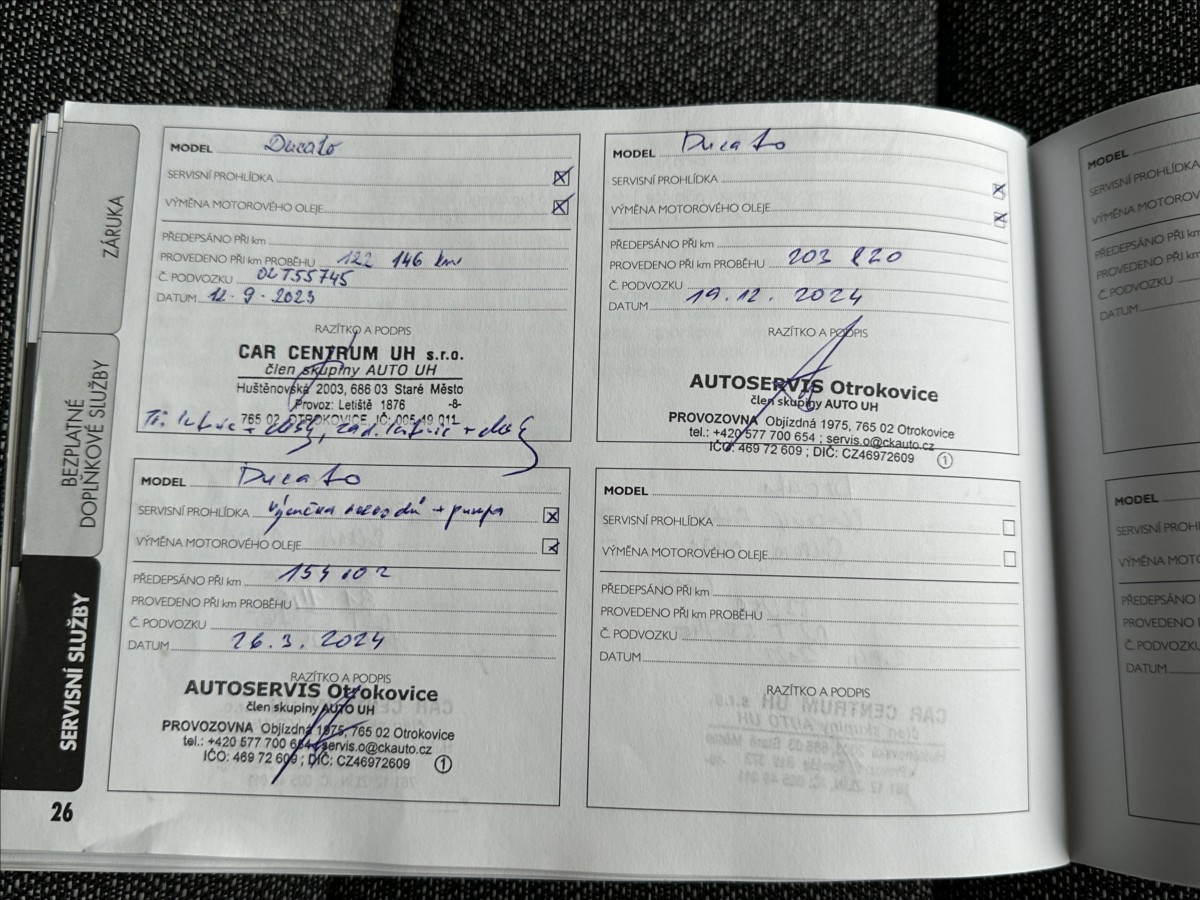 ZÁRUKA
BEZPLATNÉ
DOPLŇKOVÉ SLUŽBY
SERVISNÍ SLUŽBY
26
MODEL Ducato
SERVISNÍ PROHLÍDKA
VÝMĚNA MOTOROVÉHO OLEJE
PŘEDEPSÁNO PŘI km
PROVEDENO PŘI km PROBĚHU 122 146 km
Č. PODVOZKU 02T55745
DATUM 12.9.2023
RAZÍTKO A PODPIS
CAR CENTRUM UH s.r.o.
člen skupiny AUTO UH
Huštěnovská 2003, 686 03 Staré Město
Provoz: Letiště 1876 -8-
765 02 OTROKOVICE IČ: 005 49 011
MODEL Ducato
SERVISNÍ PROHLÍDKA
VÝMĚNA MOTOROVÉHO OLEJE
PŘEDEPSÁNO PŘI km
PROVEDENO PŘI km PROBĚHU 203 820
Č. PODVOZKU
DATUM 19.12. 2024
RAZÍTKO A PODPIS
AUTOSERVIS Otrokovice
člen skupiny AUTO UH
PROVOZOVNA Objízdná 1975, 765 02 Otrokovice
tel.: +420 577 700 654 ; servis.o@ckauto.cz
IČO: 469 72 609 ; DIČ: CZ46972609 1
MODEL Ducato
SERVISNÍ PROHLÍDKA + pumpa
VÝMĚNA MOTOROVÉHO OLEJE
PŘEDEPSÁNO PŘI km 154 102
PROVEDENO PŘI km PROBĚHU
Č. PODVOZKU
DATUM 26.3. 2024
RAZÍTKO A PODPIS
AUTOSERVIS Otrokovice
člen skupiny AUTO UH
PROVOZOVNA Objízdná 1975, 765 02 Otrokovice
tel.: +420 577 700 654 ; servis.o@ckauto.cz
IČO: 469 72 609 ; DIČ: CZ46972609 1
MODEL
SERVISNÍ PROHLÍDKA
VÝMĚNA MOTOROVÉHO OLEJE
PŘEDEPSÁNO PŘI km
PROVEDENO PŘI km PROBĚHU
Č. PODVOZKU
DATUM
RAZÍTKO A PODPIS
MODEL
SERVISNÍ PROHLÍDKA
VÝMĚNA
PŘEDEPSÁNO PŘI km
PROVEDENO PŘI km
Č. PODVOZKU
DATUM
MODEL
SERVISNÍ
VÝMĚNA
PŘEDEPSÁNO
PROVEDENO
Č. PODVOZKU
DATUM